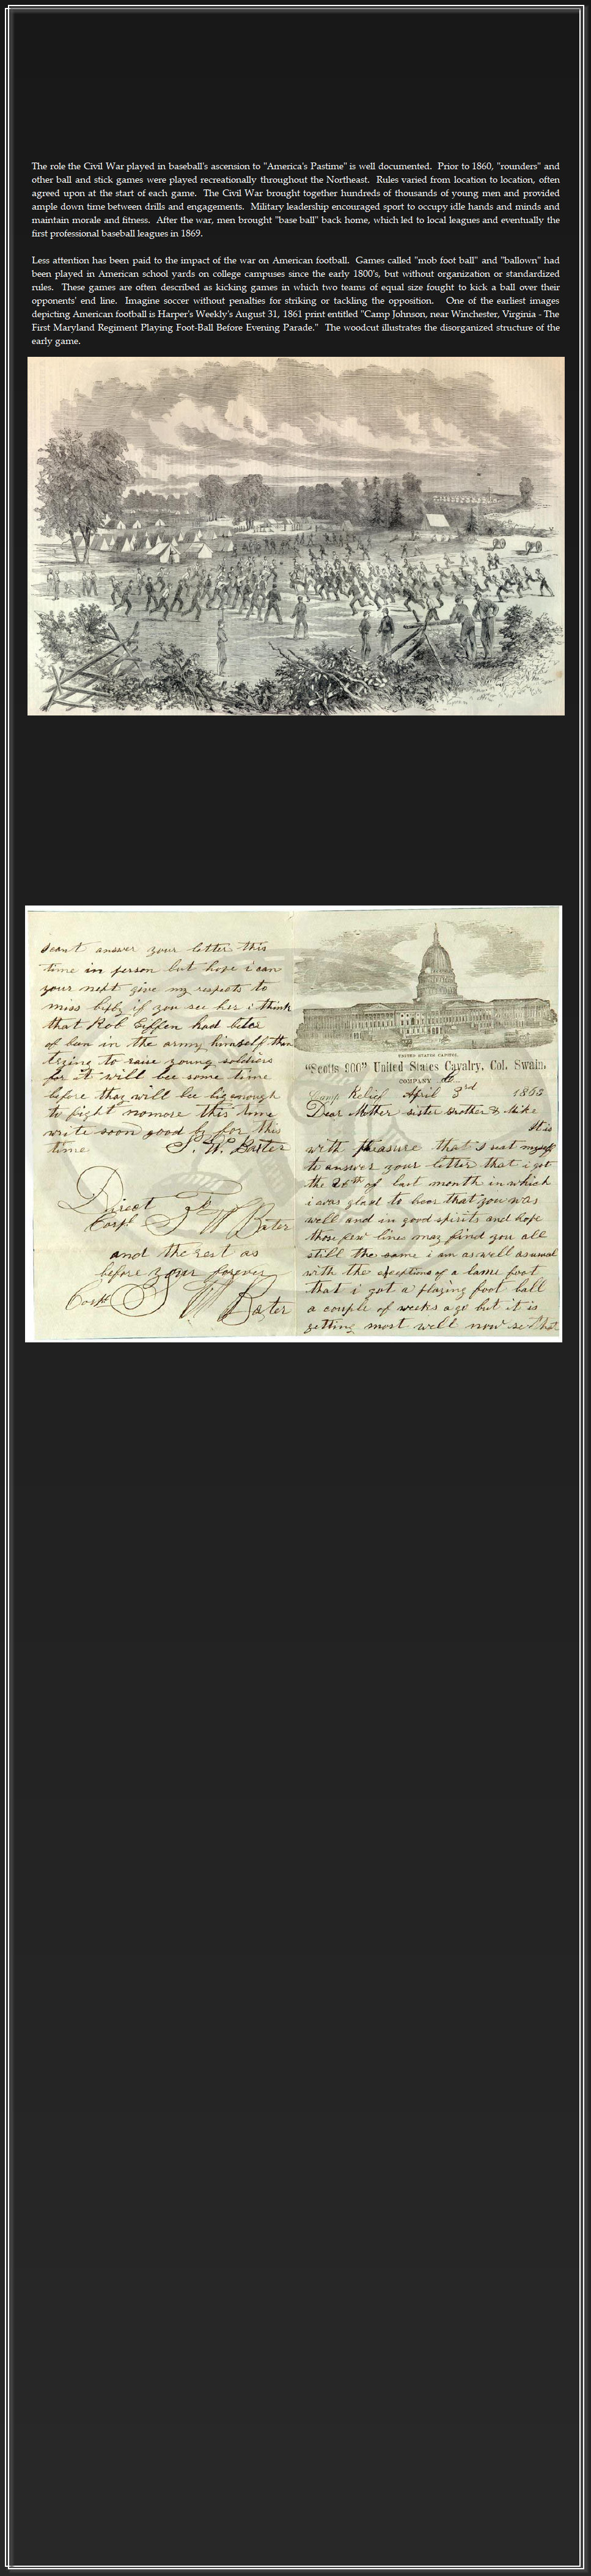 The role the Civil War played in baseball's ascension to "America's Pastime" is well documented.  Prior to 1860, "rounders" and
other ball and stick games were played recreationally throughout the Northeast.  Rules varied from location to location, often
agreed upon at the start of each game.  The Civil War brought together hundreds of thousands of young men and provided
ample down time between drills and engagements.  Military leadership encouraged sport to occupy idle hands and minds and
maintain morale and fitness.  After the war, men brought "base ball" back home, which led to local leagues and eventually the
first professional baseball leagues in 1869.
Less attention has been paid to the impact of the war on American football.  Games called "mob foot ball" and "ballown" had
been played in American school yards on college campuses since the early 1800's, but without organization or standardized
rules.  These games are often described as kicking games in which two teams of equal size fought to kick a ball over their
opponents' end line.  Imagine soccer without penalties for striking or tackling the opposition.   One of the earliest images
depicting American football is Harper's Weekly's August 31, 1861 print entitled "Camp Johnson, near Winchester, Virginia - The
First Maryland Regiment Playing Foot-Ball Before Evening Parade."  The woodcut illustrates the disorganized structure of the
early game.
i cant answer your letter this
time in person but hope i can
your next give my respects to
miss if you see her i think
that Rob had
of ben in the army himself than
trying to raise young soldiers
for it will bee some time
before thay will bee big enough
to fight nomore this time
write soon good by for this
time S. W. Baxter
Direct to
Corpl S W Baxter
and the rest as
before your forever
Corpl S W Baxter
UNITED STATES CAPITOL.
"Scotts 900" United States Cavalry, Col. Swain,
COMPANY
Camp Relief April 3rd 1863
Dear Mother sister Brother & Mike
It is
with pleasure that i seat myself
to answer your letter that i got
the 26th of last month in which
i was glad to hear that you was
well and in good spirits and hope
those few lines may find you all
still the same i am as well as usual
with the exceptions of a lame foot
that i got a playing foot ball
a couple of weeks ago but it is
getting most well now so that